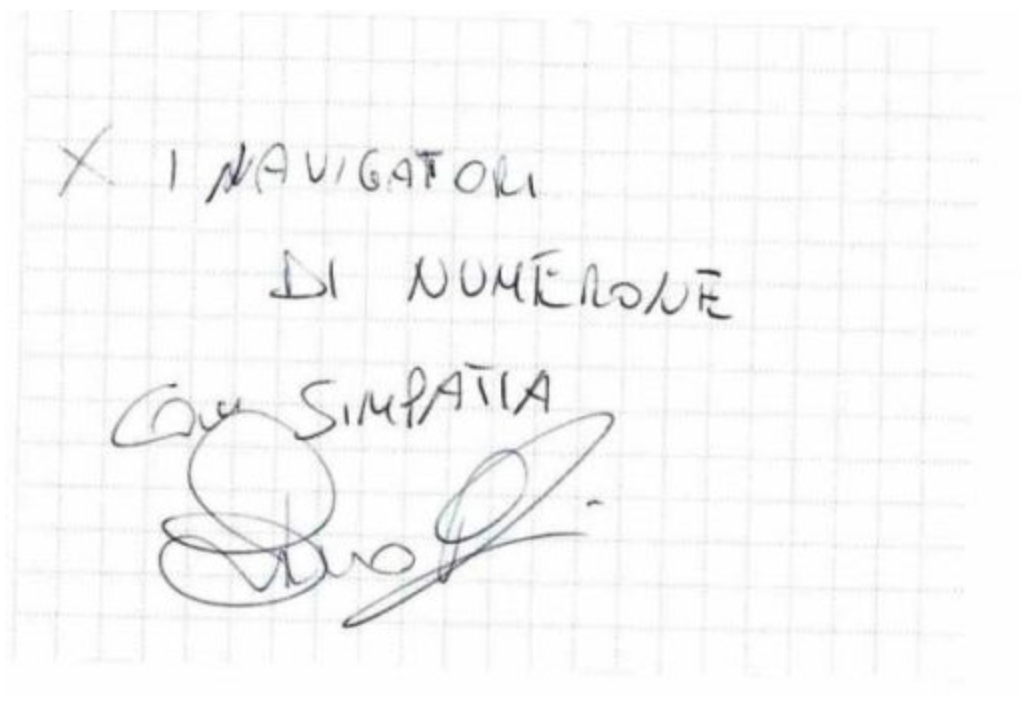 X I NAVIGATORI
DI NUMERONE
CON SIMPATIA